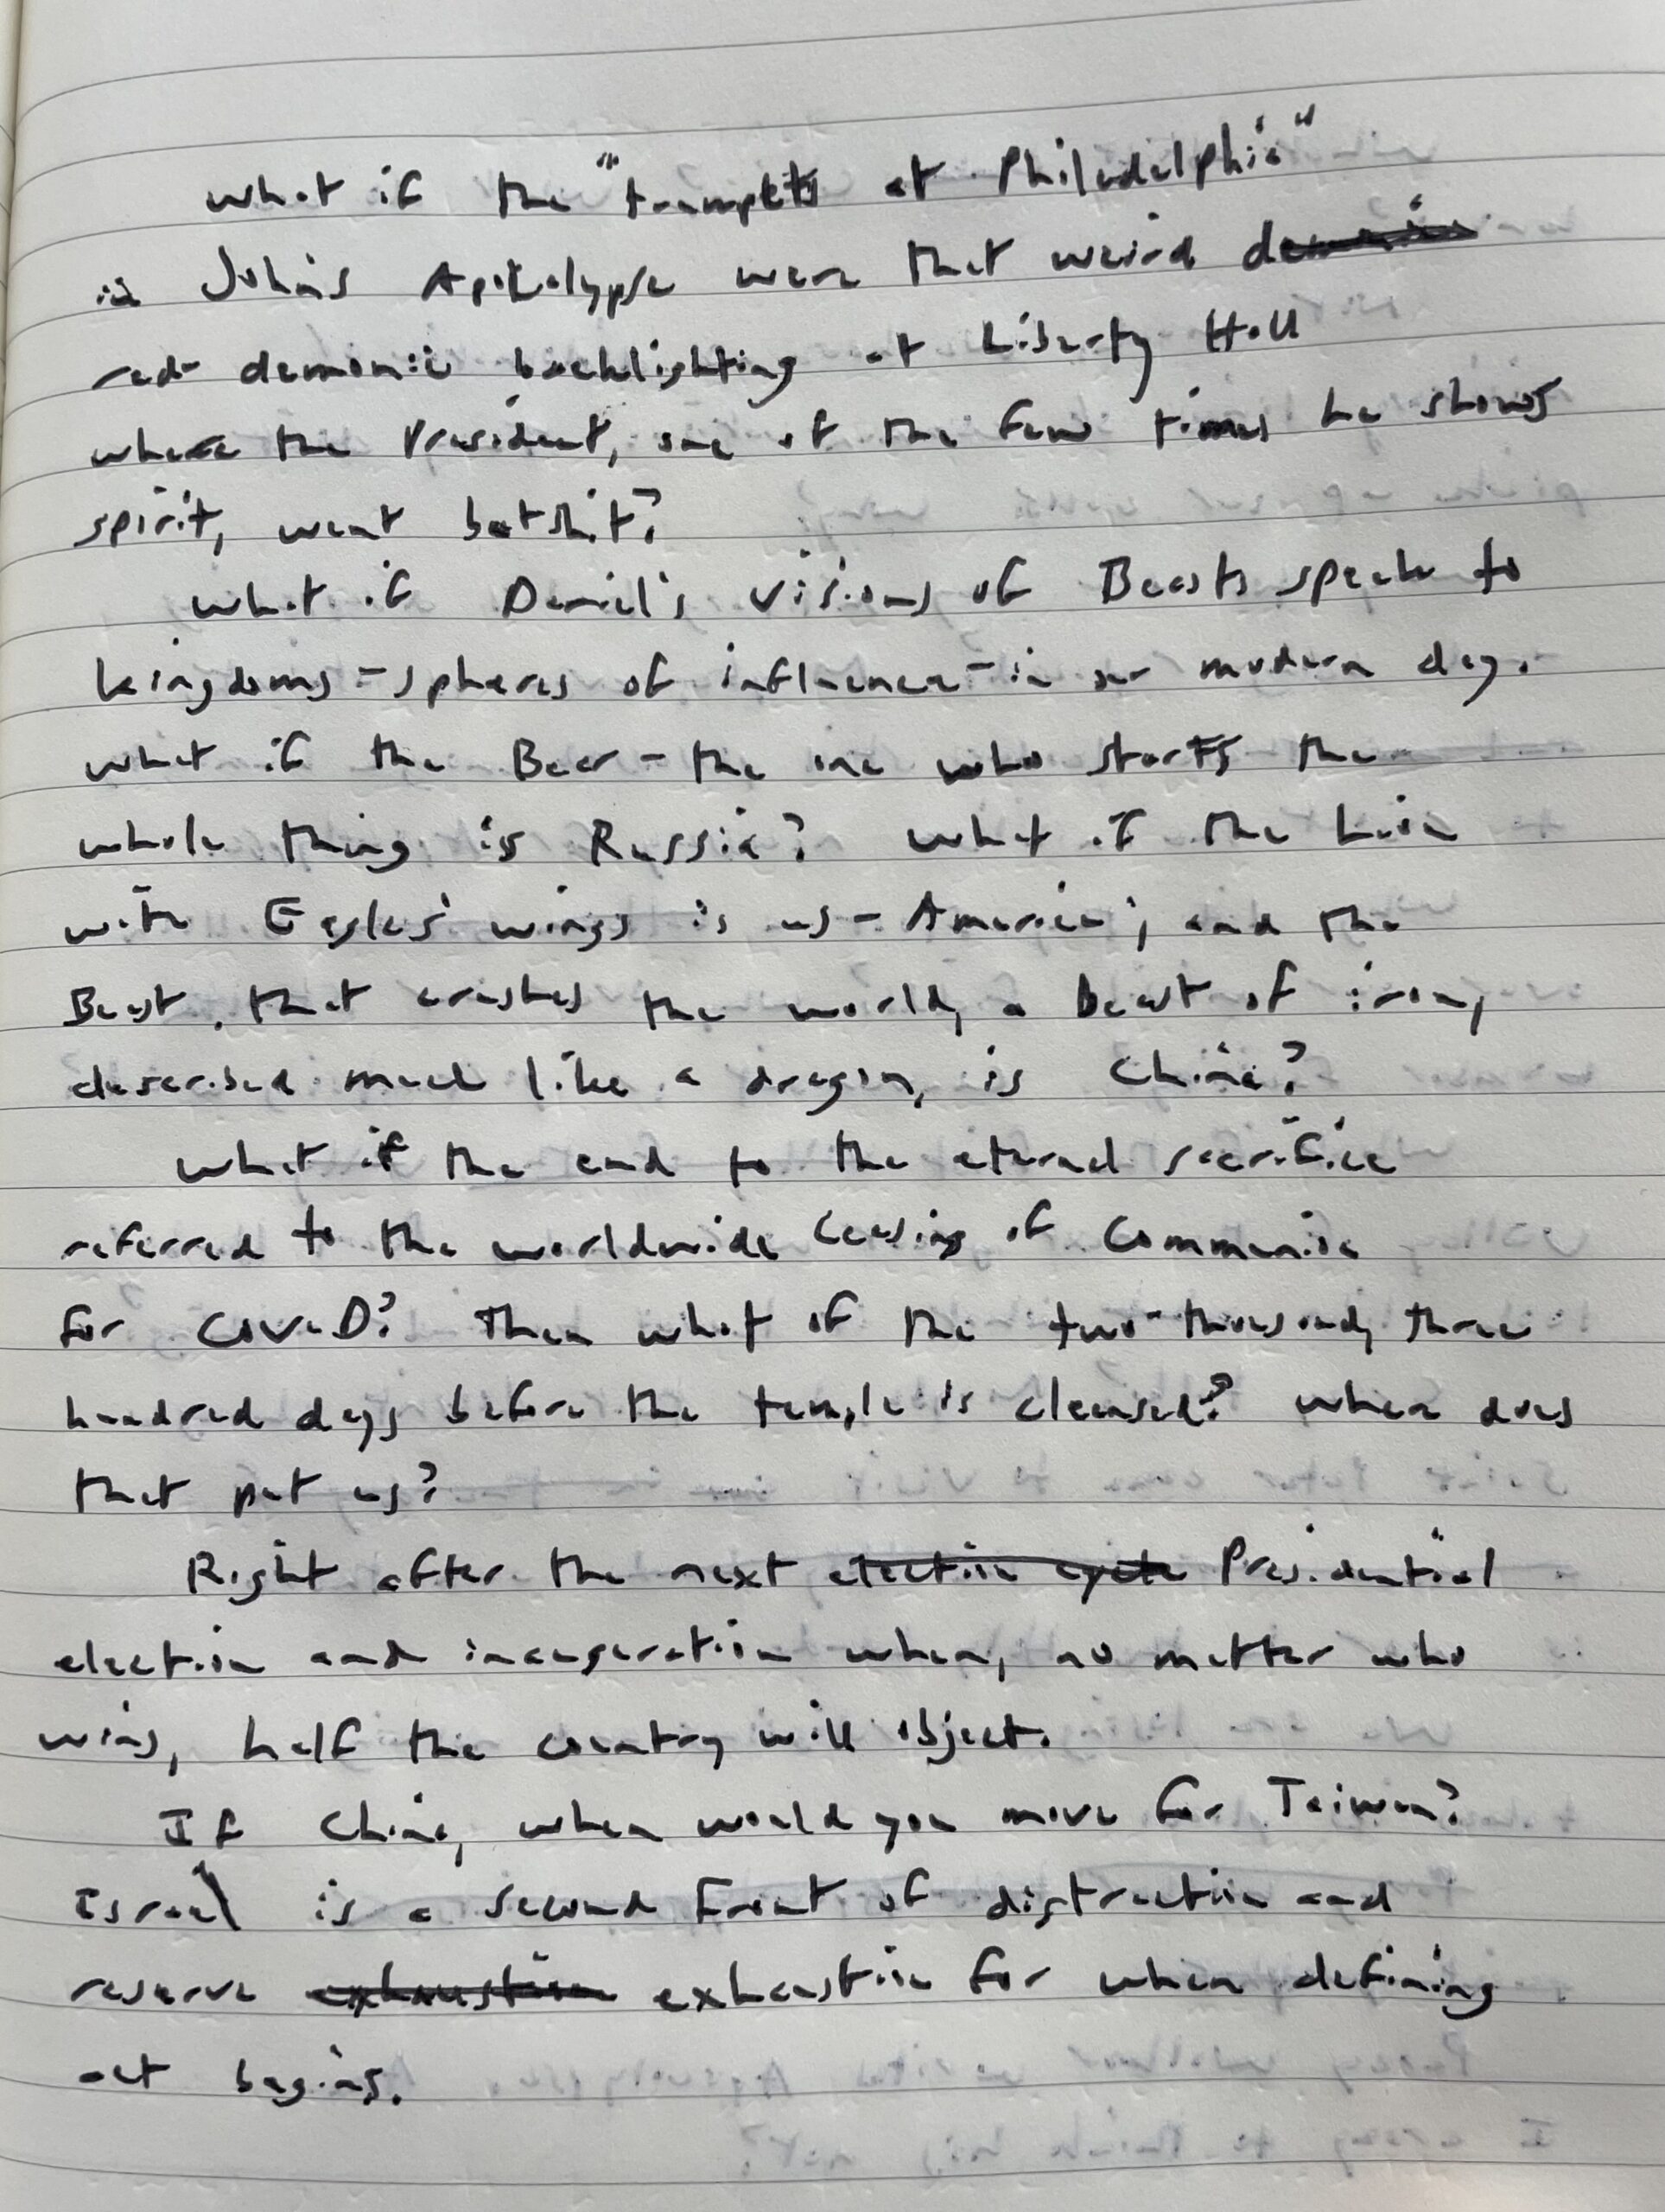 What if the "trumpets at Philadelphia"
in John's Apokolypse were that weird
red demonic backlighting at Liberty Hall
where the President, one of the few times he shows
spirit, went batshit?
What if Daniel's visions of Beasts speak to
kingdoms - spheres of influence - in our modern day.
What if the Bear - the one who starts the
whole thing is Russia? What if the Lion
with Eagles' wings is us - America; and the
Beast that crushes the world, a beast of iron,
described much like a dragon, is China?
What if the end to the eternal sacrifice
referred to the worldwide ceasing of Communion
for COVID? Then what of the two-thousand, three
hundred days before the temple is cleansed? When does
that put us?
Right after the next election cycle Presidential
election and inauguration when, no matter who
wins, half the country will object.
If China, when would you move for Taiwan?
Israel is a second front of distraction and
reserve exhaustion exhaustion for when defining
act begins.